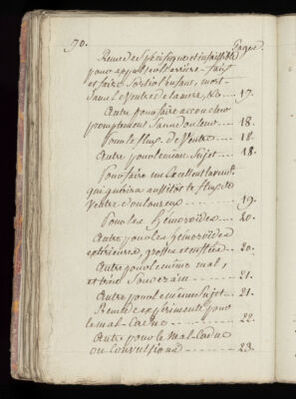 90.
Pages.
Remede Spécifique et infaillible
pour
et faire Sortir l'enfant, mort
Dans le Ventre de la mere, &c. 17.
Autre pour faire accoucher
promptement Sans douleur .... 18.
Pour le flux de Ventre .... 18.
Autre pour le même Sujet .... 18.
Pour faire un Excellent
qui guérira aussitôt le flux de
Ventre douloureux ....... 19.
Pour les hémoroïdes .... 20.
Autre, pour les hémoroïdes
extérieures, grosses et enflées .. 20.
Autre pour le même mal,
et très Souverain ....... 21.
Autre pour le même Sujet .. 21.
Remede expérimenté pour
le mal-Caduc ......... 22.
Autre pour le Mal-Caduc
ou Convulsions ....... 23.